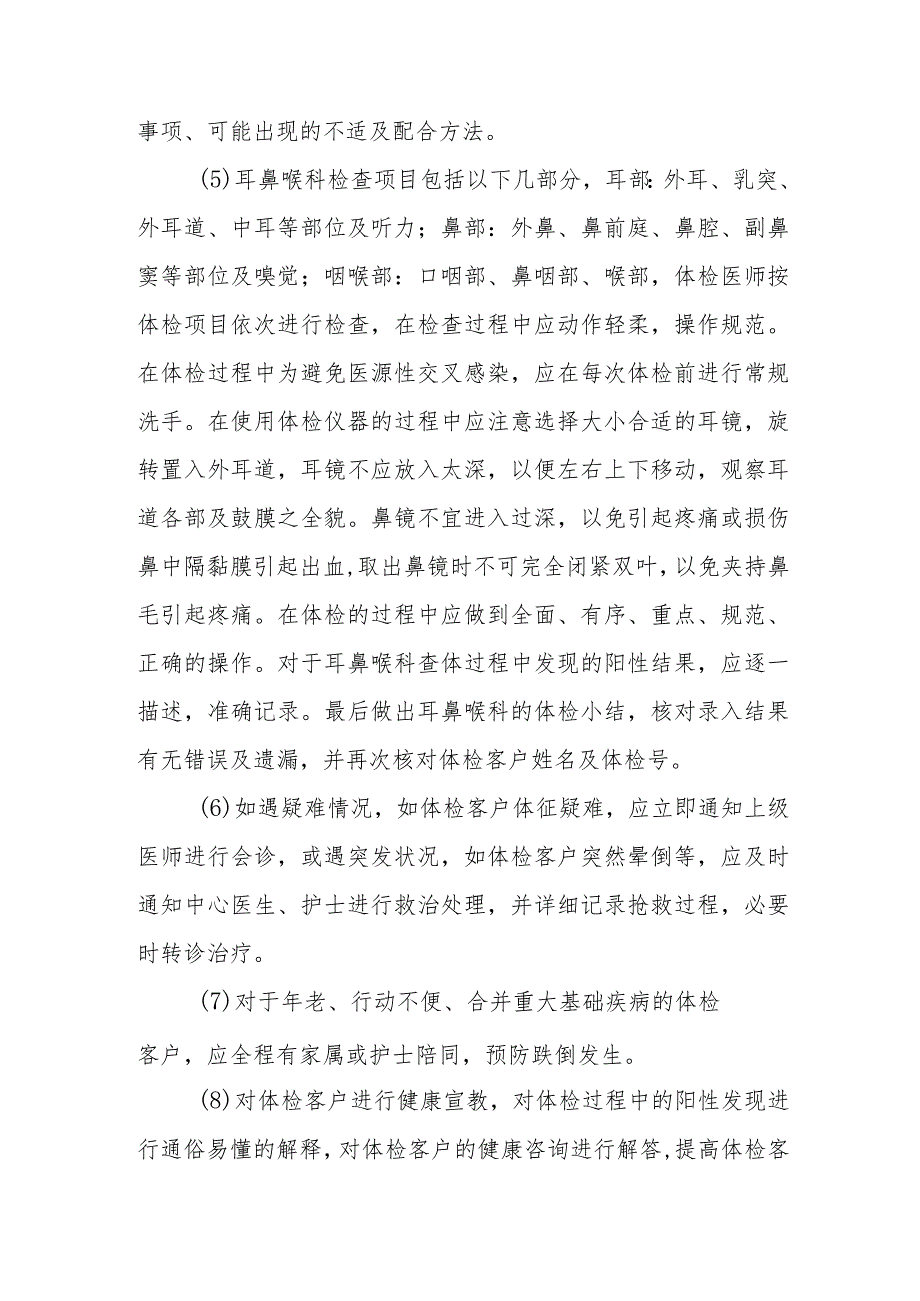 事项、可能出现的不适及配合方法。
(5)耳鼻喉科检查项目包括以下几部分，耳部：外耳、乳突、
外耳道、中耳等部位及听力；鼻部：外鼻、鼻前庭、鼻腔、副鼻
窦等部位及嗅觉；咽喉部：口咽部、鼻咽部、喉部，体检医师按
体检项目依次进行检查，在检查过程中应动作轻柔，操作规范。
在体检过程中为避免医源性交叉感染，应在每次体检前进行常规
洗手。在使用体检仪器的过程中应注意选择大小合适的耳镜，旋
转置入外耳道，耳镜不应放入太深，以便左右上下移动，观察耳
道各部及鼓膜之全貌。鼻镜不宜进入过深，以免引起疼痛或损伤
鼻中隔黏膜引起出血,取出鼻镜时不可完全闭紧双叶，以免夹持鼻
毛引起疼痛。在体检的过程中应做到全面、有序、重点、规范、
正确的操作。对于耳鼻喉科查体过程中发现的阳性结果，应逐一
描述，准确记录。最后做出耳鼻喉科的体检小结，核对录入结果
有无错误及遗漏，并再次核对体检客户姓名及体检号。
(6)如遇疑难情况，如体检客户体征疑难，应立即通知上级
医师进行会诊，或遇突发状况，如体检客户突然晕倒等，应及时
通知中心医生、护士进行救治处理，并详细记录抢救过程，必要
时转诊治疗。
(7)对于年老、行动不便、合并重大基础疾病的体检
客户，应全程有家属或护士陪同，预防跌倒发生。
(8)对体检客户进行健康宣教，对体检过程中的阳性发现进
行通俗易懂的解释，对体检客户的健康咨询进行解答,提高体检客